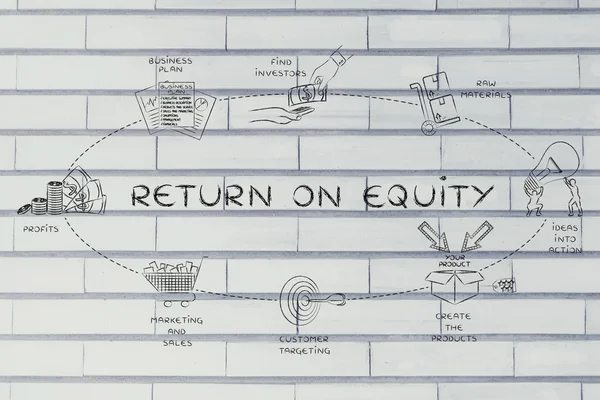 BUSINESS
PLAN
BUSINESS
PLAN
FIND
INVESTORS
RAW
MATERIALS
RETURN ON EQUITY
PROFITS
IDEAS
INTO
ACTION
YOUR
PRODUCT
CREATE
THE
PRODUCTS
MARKETING
AND
SALES
CUSTOMER
TARGETING